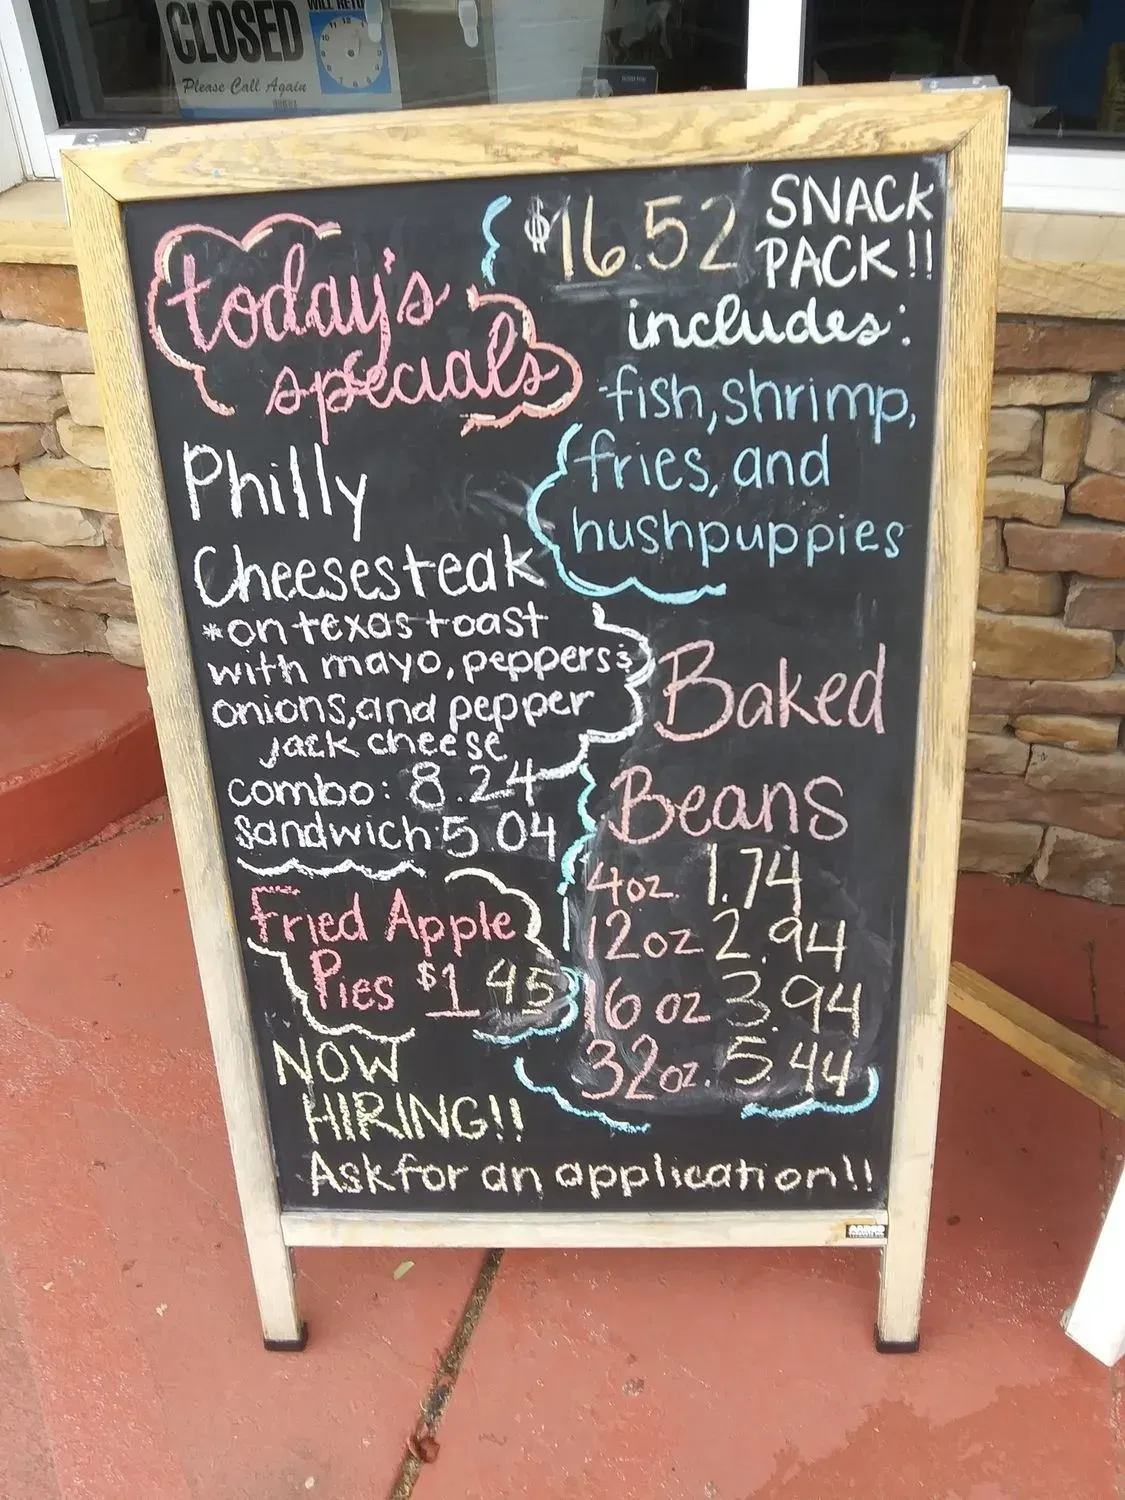 CLOSED
WILL RETU
Please Call Again
today's
specials
Philly
Cheesesteak
*on texas toast
with mayo, peppers &
onions, and pepper
jack cheese
combo: 8.24
sandwich: 5.04
Fried Apple
Pies $1.45
NOW
HIRING!!
Ask for an application!!
$16.52 SNACK
PACK!!
includes:
fish, shrimp,
fries, and
hushpuppies
Baked
Beans
4oz. 1.74
12oz 2.94
16 oz 3.94
32oz. 5.44